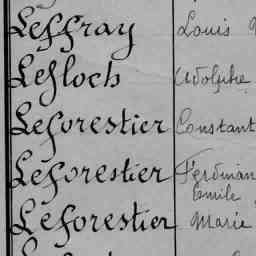 Leffray Louis
Lefloch Adolphe
Leforestier Constant
Leforestier Ferdinan
Emile
Leforestier Marie